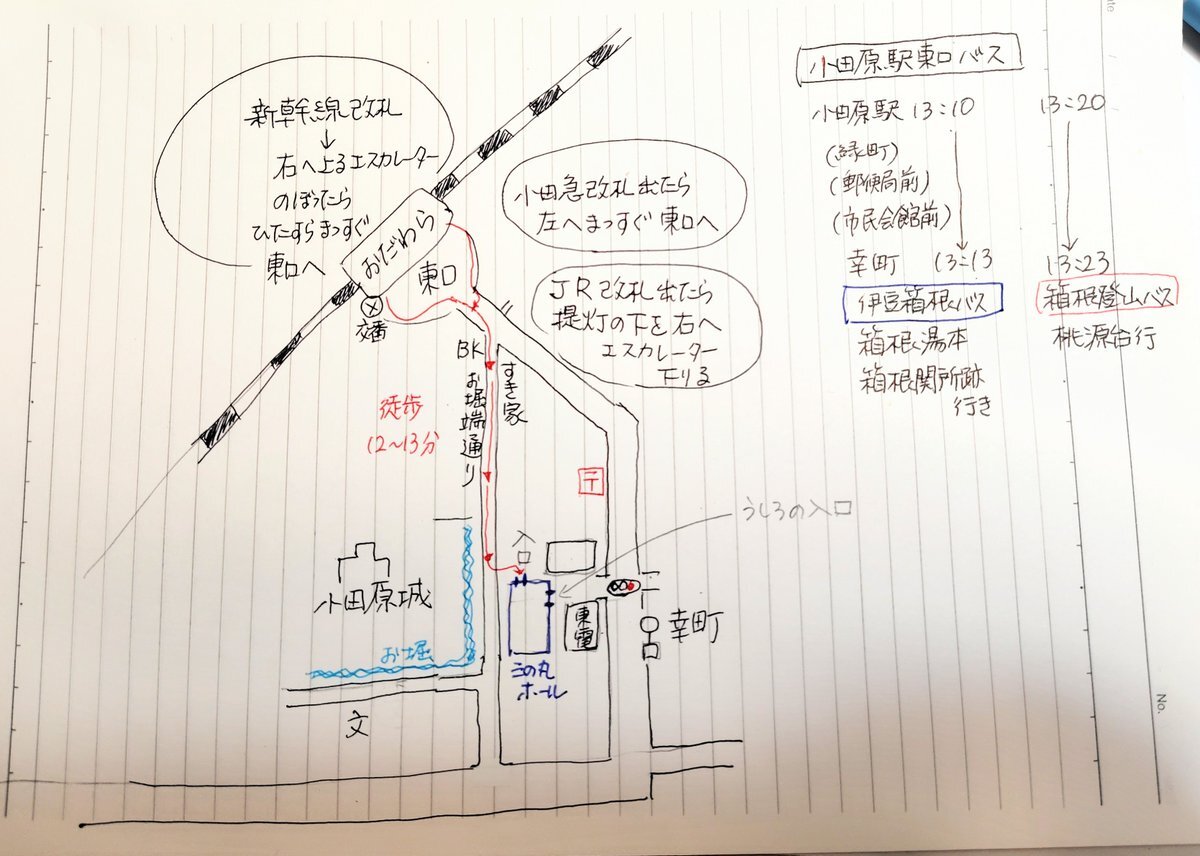 新幹線改札
↓
右へ上るエスカレーター
のぼったら
ひたすらまっすぐ
東口へ
おだわら
東口
交番
小田急改札出たら
左へまっすぐ東口へ
JR改札出たら
提灯の下を右へ
エスカレーター
下りる
BK
お堀端通り
すき家
徒歩
12〜13分
〒
うしろの入口
入口
小田原城
お堀
三の丸
ホール
東電
幸町
文
小田原駅東口バス
小田原駅 13:10 13:20
(緑町)
(郵便局前)
(市民会館前)
幸町 13:13 13:23
伊豆箱根バス 箱根登山バス
箱根湯本 桃源台行
箱根関所跡
行き
No.